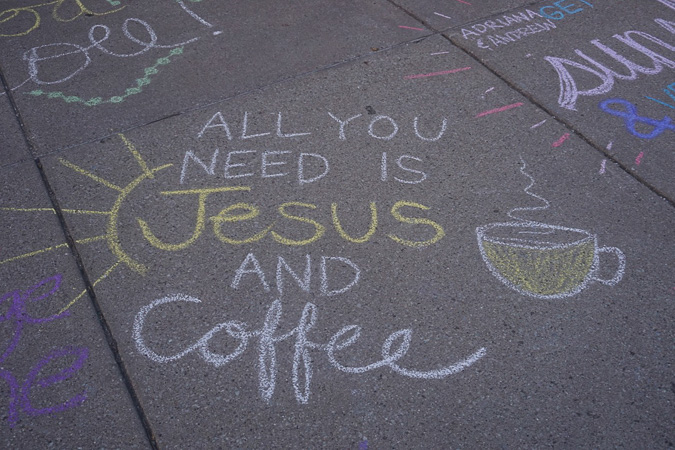 ADRIANA GET
& ANDREW
ALL YOU
NEED IS
Jesus
AND
Coffee
&